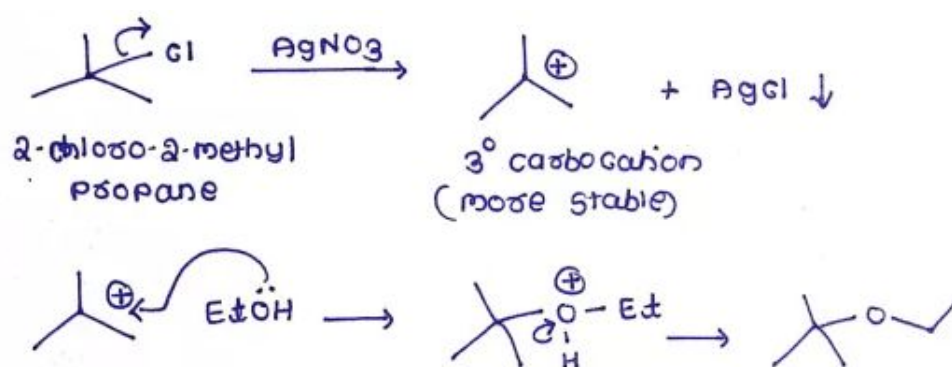 Cl
AgNO3
⊕
+ AgCl ↓
2-chloro-2-methyl
propane
3° carbocation
(more stable)
⊕
EtÖH
⊕
O–Et
H
O